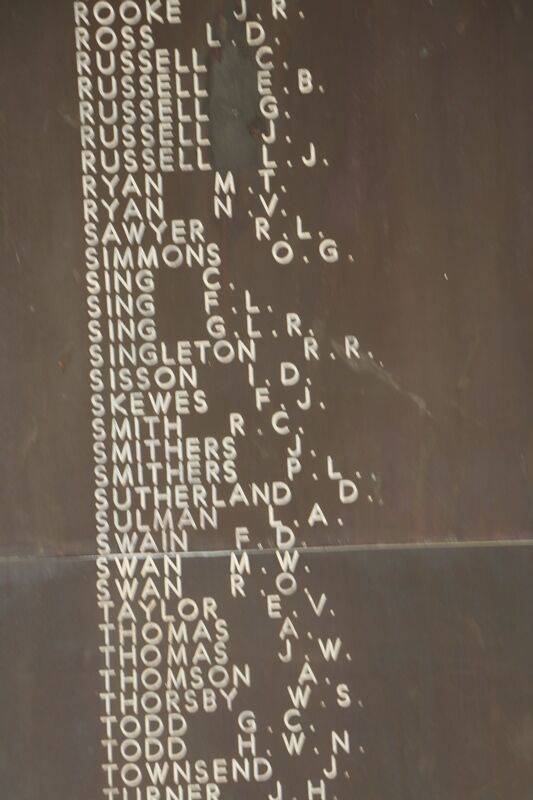 ROOKE J.R.
ROSS L.D.
RUSSELL C.
RUSSELL E.B.
RUSSELL G.
RUSSELL J.
RUSSELL L.J.
RYAN M.T.
RYAN N.V.
SAWYER R.L.
SIMMONS O.G.
SING C.
SING F.L.
SING G.L.R.
SINGLETON R.R.
SISSON I.D.
SKEWES F.J.
SMITH R.C.
SMITHERS J.
SMITHERS P.L.
SUTHERLAND D.
SULMAN L.A.
SWAIN F.D.
SWAN M.W.
SWAN R.O.
TAYLOR E.V.
THOMAS A.
THOMAS J.W.
THOMSON A.
THORSBY W.S.
TODD G.C.
TODD H.W.N.
TOWNSEND J.
TURNER J.H.